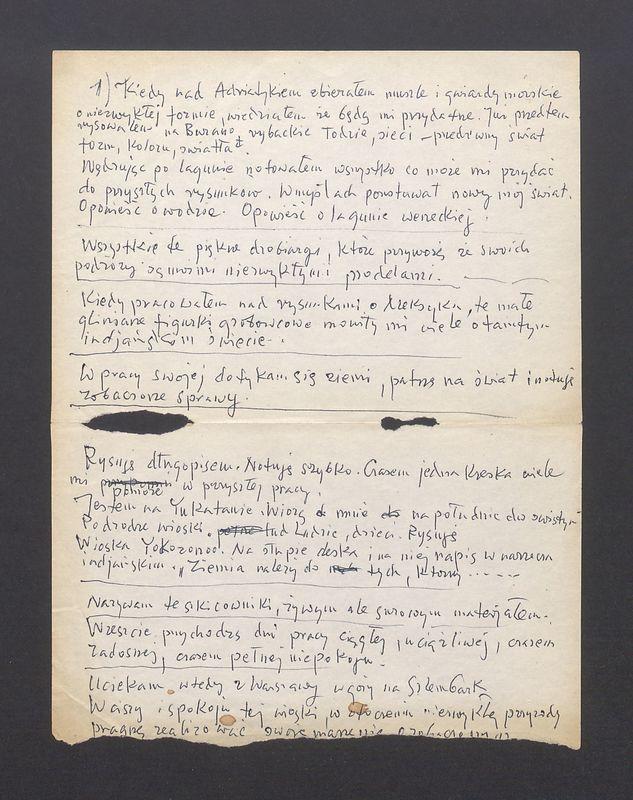 1) Kiedy nad Adriatykiem zbierałem muszle i gwiazdy morskie
o niezwykłej formie, wiedziałem że będą mi przydatne. Już przedtem
rysowałem na Burano, rybackie łodzie, sieci – przedziwny świat
form, koloru, światła.
Wędrując po lagunie notowałem wszystko co może mi przydać
do przyszłych rysunków. W myślach powstawał nowy mój świat.
Opowieść o wodzie. Opowieść o lagunie weneckiej.
Wszystkie te piękne drobiazgi, które przywożę ze swoich
podróży są moimi niezwykłymi modelami.
Kiedy pracowałem nad rysunkami o Meksyku, te małe
gliniane figurki grobowcowe mówiły mi wiele o tamtym
indjańskim świecie.
W pracy swojej dotykam się ziemi, patrzę na świat i notuję
zobaczone sprawy.
Rysuję długopisem. Notuję szybko. Czasem jedna kreska wiele
mi pomoże w przyszłej pracy.
Jestem na Yukatanie. Wiozą mnie na południe do
Po drodze wioski. ludzie, dzieci. Rysuję
Wioska Na słupie deska i na niej napis w narzeczu
indjańskim. "Ziemia należy do tych, którzy -----
Nazywam te szkicowniki, żywym ale surowym materjałem.
Wreszcie przychodzą dni pracy ciągłej, uciążliwej, czasem
radosnej, czasem pełnej niepokoju.
Uciekam wtedy z Warszawy w góry na Szlembark
W ciszy i spokoju tej wioski w otoczeniu niezwykłej przyrody
pragnę realizować swoje marzenia